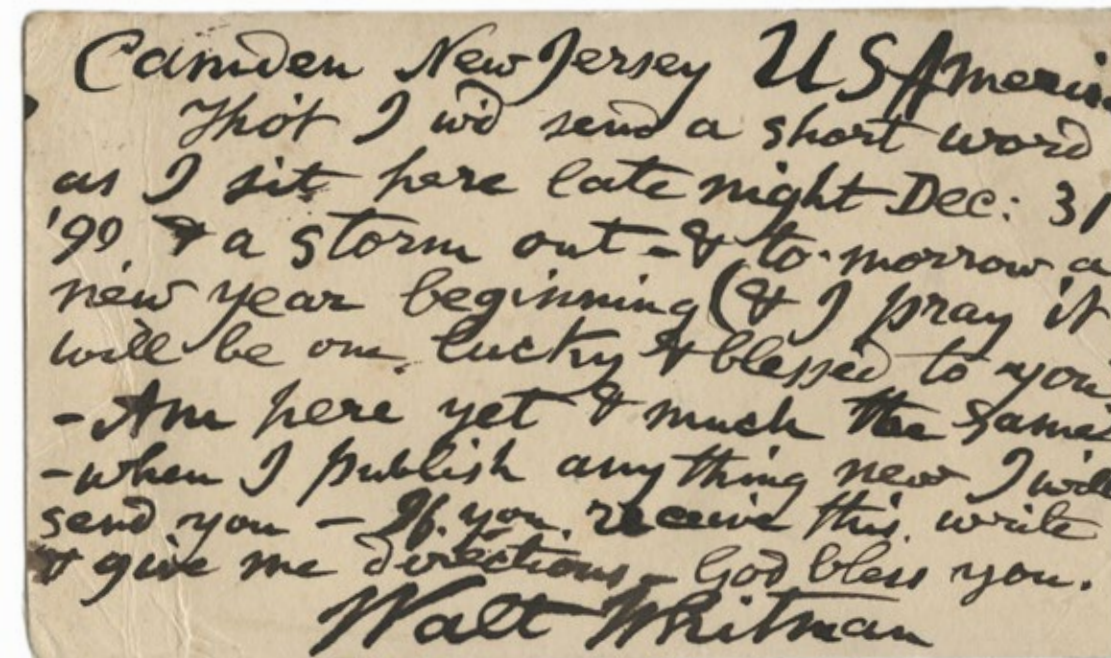 Camden New Jersey U S America
Tho't I w'd send a short word
as I sit here late night Dec: 31
'90. & a storm out - & to-morrow a
new year beginning (& I pray it
will be one lucky & blessed to you
- Am here yet & much the same
- when I publish any thing new I will
send you - If you receive this write
& give me directions - God bless you.
Walt Whitman